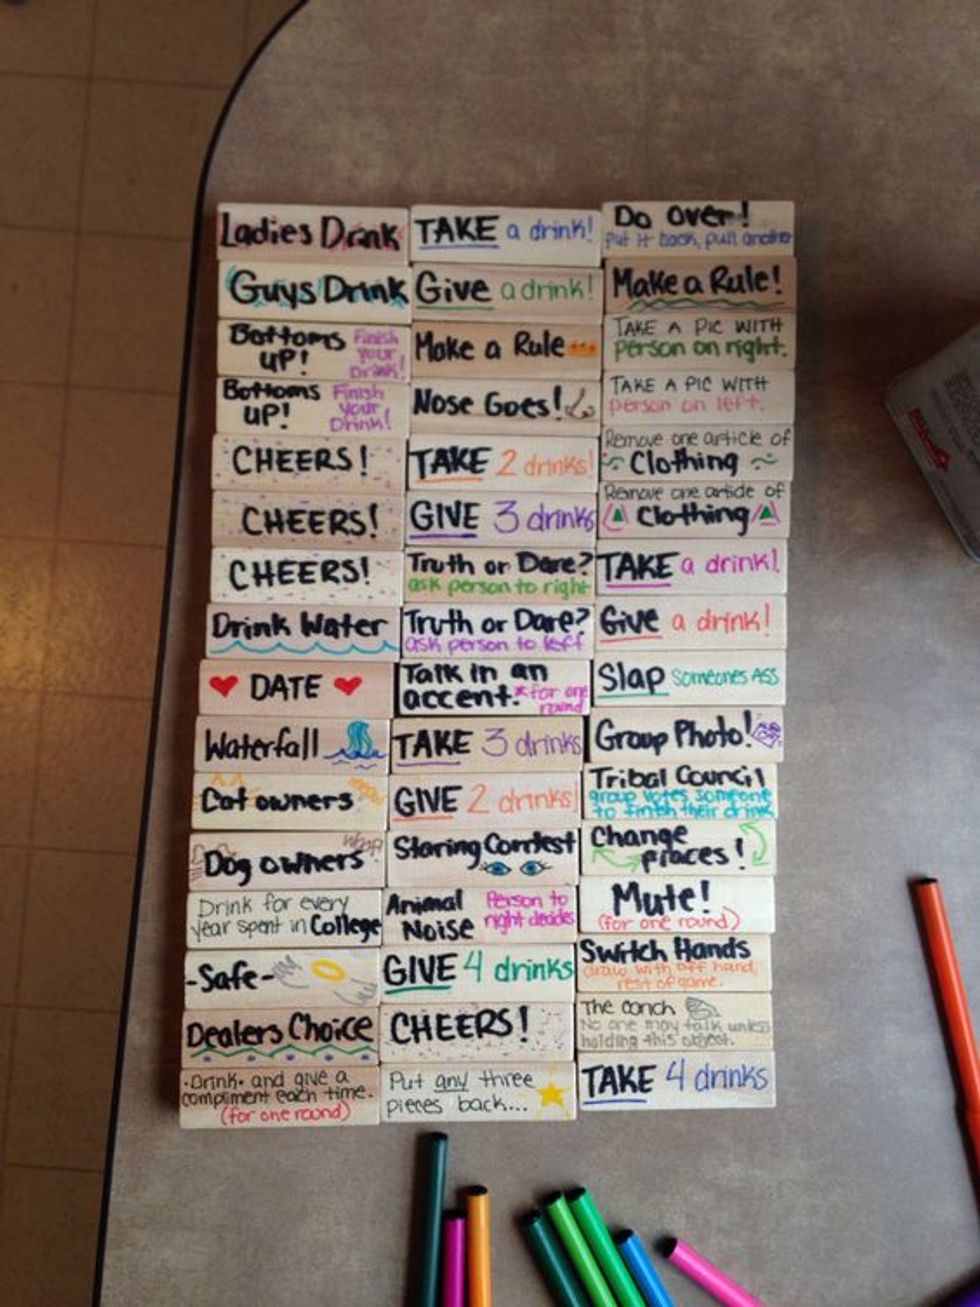 Ladies Drink
Guys Drink
Bottoms UP! Finish your Drink!
Bottoms UP! Finish your Drink!
CHEERS!
CHEERS!
CHEERS!
Drink Water
DATE
Waterfall
Cat owners meow
Dog owners
Drink for every
year spent in College
-Safe-
Dealers Choice
·Drink· and give a
compliment each time.
(for one round)
TAKE a drink!
Give a drink!
Make a Rule
Nose Goes!
TAKE 2 drinks!
GIVE 3 drinks
Truth or Dare?
ask person to right
Truth or Dare?
ask person to left
Talk in an
accent. *for one
round
TAKE 3 drinks
GIVE 2 drinks!
Staring Contest
Animal Noise Person to right decides
GIVE 4 drinks
CHEERS!
Put any three
pieces back...
Do over!
Put it back, pull another
Make a Rule!
TAKE A PIC WITH
person on right.
TAKE A PIC WITH
person on left.
Remove one article of
Clothing
Remove one article of
Clothing
TAKE a drink!
Give a drink!
Slap someones ASS
Group Photo!
Tribal Council
group votes someone
to finish their drink
Change
places!
Mute!
(for one round)
Switch Hands
draw with off hand,
rest of game.
The conch
No one may talk unless
holding this object.
TAKE 4 drinks